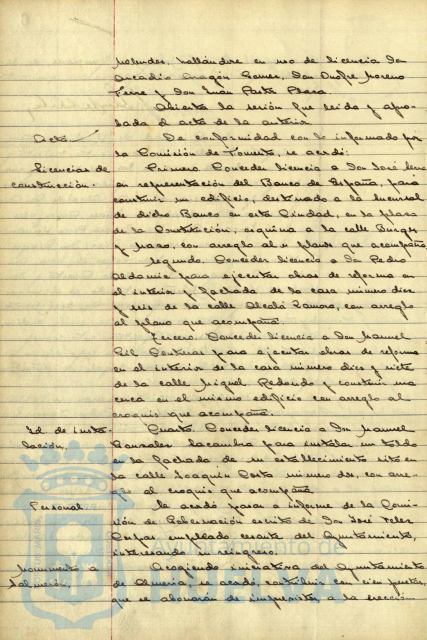 hallándose en uso de licencia Don
Arcadio Aragón Gomez, Don Onofre Moreno
y Don Juan
Abierta la sesión fue leída y apro-
bada el acta de la anterior.
Acta.
De conformidad con lo informado por
la Comisión de Fomento, se acordó:
Licencias de
construcción.
Primero. Conceder licencia a Don José
en representación del Banco de España, para
construir un edificio, destinado a la sucursal
de dicho Banco en esta Ciudad, en la plaza
de la Constitución, esquina a la calle Burgos
y Mazo, con arreglo al plano que acompaña.
Segundo. Conceder licencia a Don Pedro
Aldamiz para ejecutar obras de reforma en
el interior y fachada de la casa número diez
y seis de la calle Alcalá Zamora, con arreglo
al plano que acompaña.
Tercero. Conceder licencia a Don Manuel
Gil Contreras para ejecutar obras de reforma
en el interior de la casa número diez y siete
de la calle Miguel Redondo y construir una
cerca en el mismo edificio con arreglo al
croquis que acompaña.
Id. de insta-
lación.
Cuarto. Conceder licencia a Don Manuel
Gonzalez Lacambra para instalar un toldo
en la fachada de su establecimiento sito en
la calle Joaquín Costa número dos, con arre-
glo al croquis que acompaña
Personal.
Se acordó pasar a informe de la Comi-
sión de Gobernación escrito de Don José Velez
empleado cesante del Ayuntamiento,
interesando reingreso.
Monumento a
Salmerón.
Acogiendo iniciativa del Ayuntamiento
de Almería, se acordó, contribuir con cien pesetas,
que se abonarán de imprevistos, a la erección
Ayuntamiento de